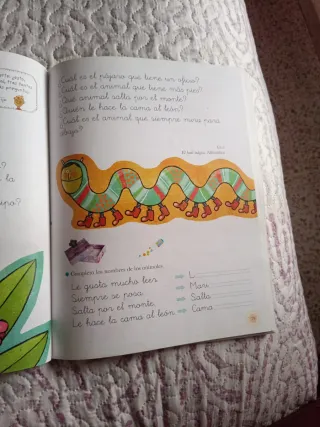 ¿Cuál es el pájaro que tiene un oficio?
¿Cuál es el animal que tiene más pies?
¿Qué animal salta por el monte?
¿Quién le hace la cama al león?
¿Cuál es el animal que siempre mira para
abajo?
Completa los nombres de los animales.
Le gusta mucho leer. L
Siempre se posa. Mari
Salta por el monte. Salta
Le hace la cama al león. Cama
la